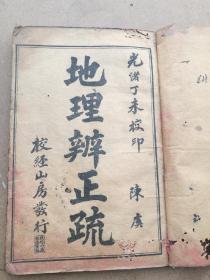 光緒丁未校印 陳虞
地理辨正疏
校經山房發行